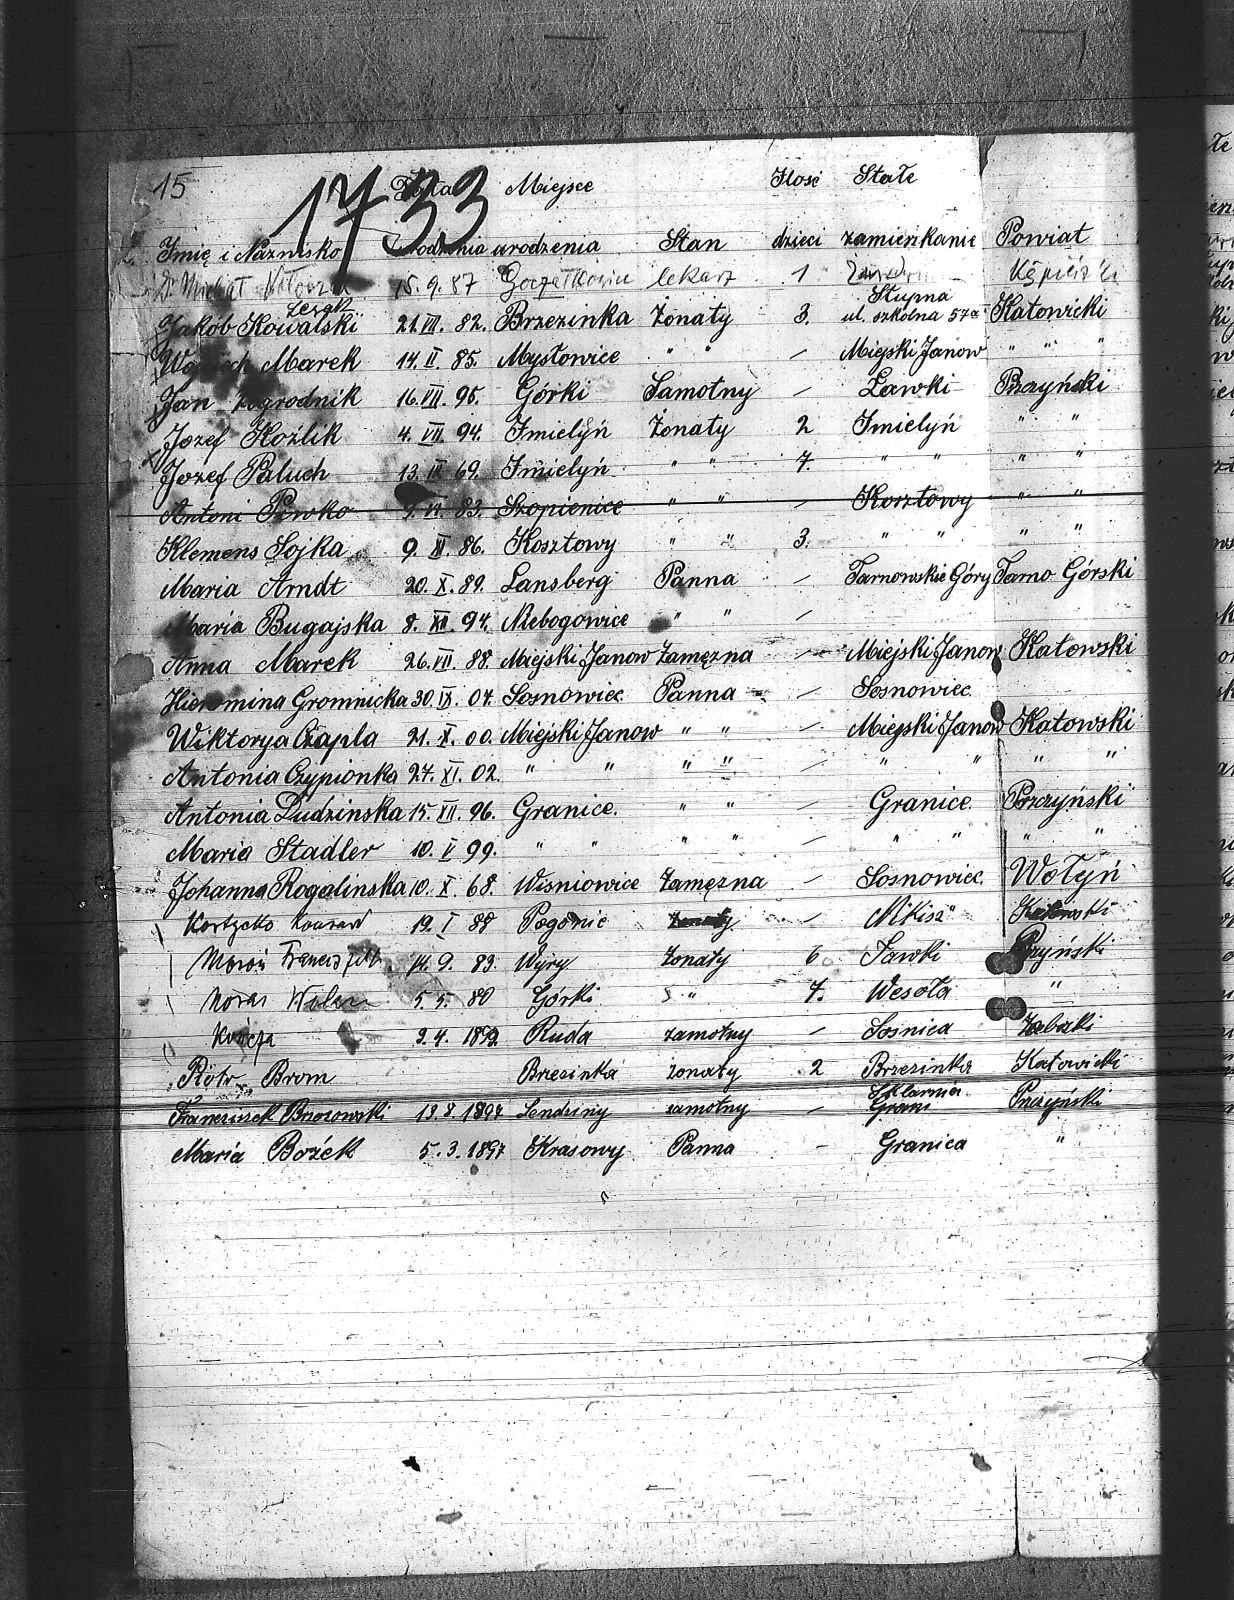 15
1733
Data Miejsce Ilość Stałe
Imię i Nazwisko urodzenia Stan dzieci zamieszkanie Powiat
Dr Michał 15.9.87 lekarz 1
Lesok Słupna
Jakób Kowalski 21.VII. 82. Brzezinka Żonaty 3. ul. szkolna 57a Katowicki
Wojciech Marek 14. II. 85. Mysłowice " " — Miejski Janow " " "
Jan Zogrodnik 16.VII. 95. Górki Samotny — Lawki Pszczyński
Jozef Koźlik 4. VII. 94. Imielyń Żonaty 2 Imielyń " "
Jozef Paluch 13. III. 69. Imielyń " " 7. " " " "
Antoni Piwko 9. VI. 83. Szopienice " " — Kosztowy " "
Klemens Sojka 9. XI. 86. Kosztowy " " 3. " " " "
Maria Arndt 20. X. 89. Lansberg Panna — Tarnowskie Góry Tarno Górski
Maria Bugajska 8. XII. 94. Niebogowice " " —
Anna Marek 26.VII. 88. Miejski Janow Zamęzna — Miejski Janow Katowski
Hieromina Gromnicka 30. IX. 04. Sosnowiec Panna — Sosnowiec
Wiktorya Czapla 21. X. 00. Miejski Janow " " — Miejski Janow Katowski
Antonia Czypionka 27. XI. 02. " " " " — " " " "
Antonia Ludzinska 15. XII. 96. Granice. " " — Granice. Pszczyński
Maria Stadler 10. V 99. " " " " — " " " "
Johanna Rogalinska 10. X. 68. Wisniowice Zamęzna — Sosnowiec. Wołyń
Konrad 19. I 88 Pogonie — Katowski
14. 9. 83. Wyry Żonaty 6 Ławki
5. 5. 80 Górki " 7. Wesoła "
9.4. 1892 Ruda zamotny — Sośnica Zabzki
Piotr Brom Brzezinka żonaty 2 Brzezinka Katowicki
Sklarnia
Franciszek Brzozowski 19 8 1897 Lendziny samotny — Grani
Maria Bożek 5. 3. 1897 Krasowy Panna — Granica "